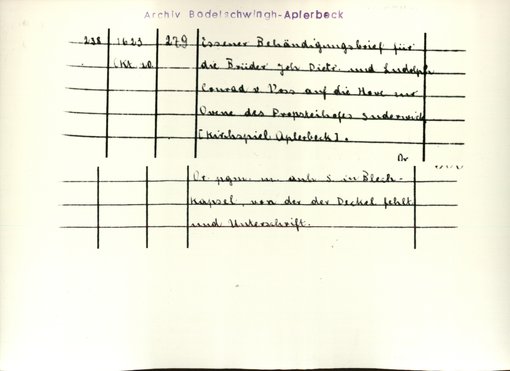 Archiv Bodelschwingh-Aplerbeck
238 1623 279 Essener Behändigungsbrief für
(Kt. 10 die Brüder Joh Dietr. und Ludolph
Conrad v. Voss auf die Hove zur
Ovene des Propsteihofes Suderwick
[Kirchspiel Aplerbeck].
Or
Or. pgm. m. anh. S. in Blech-
kapsel, von der der Deckel fehlt
und Unterschrift.